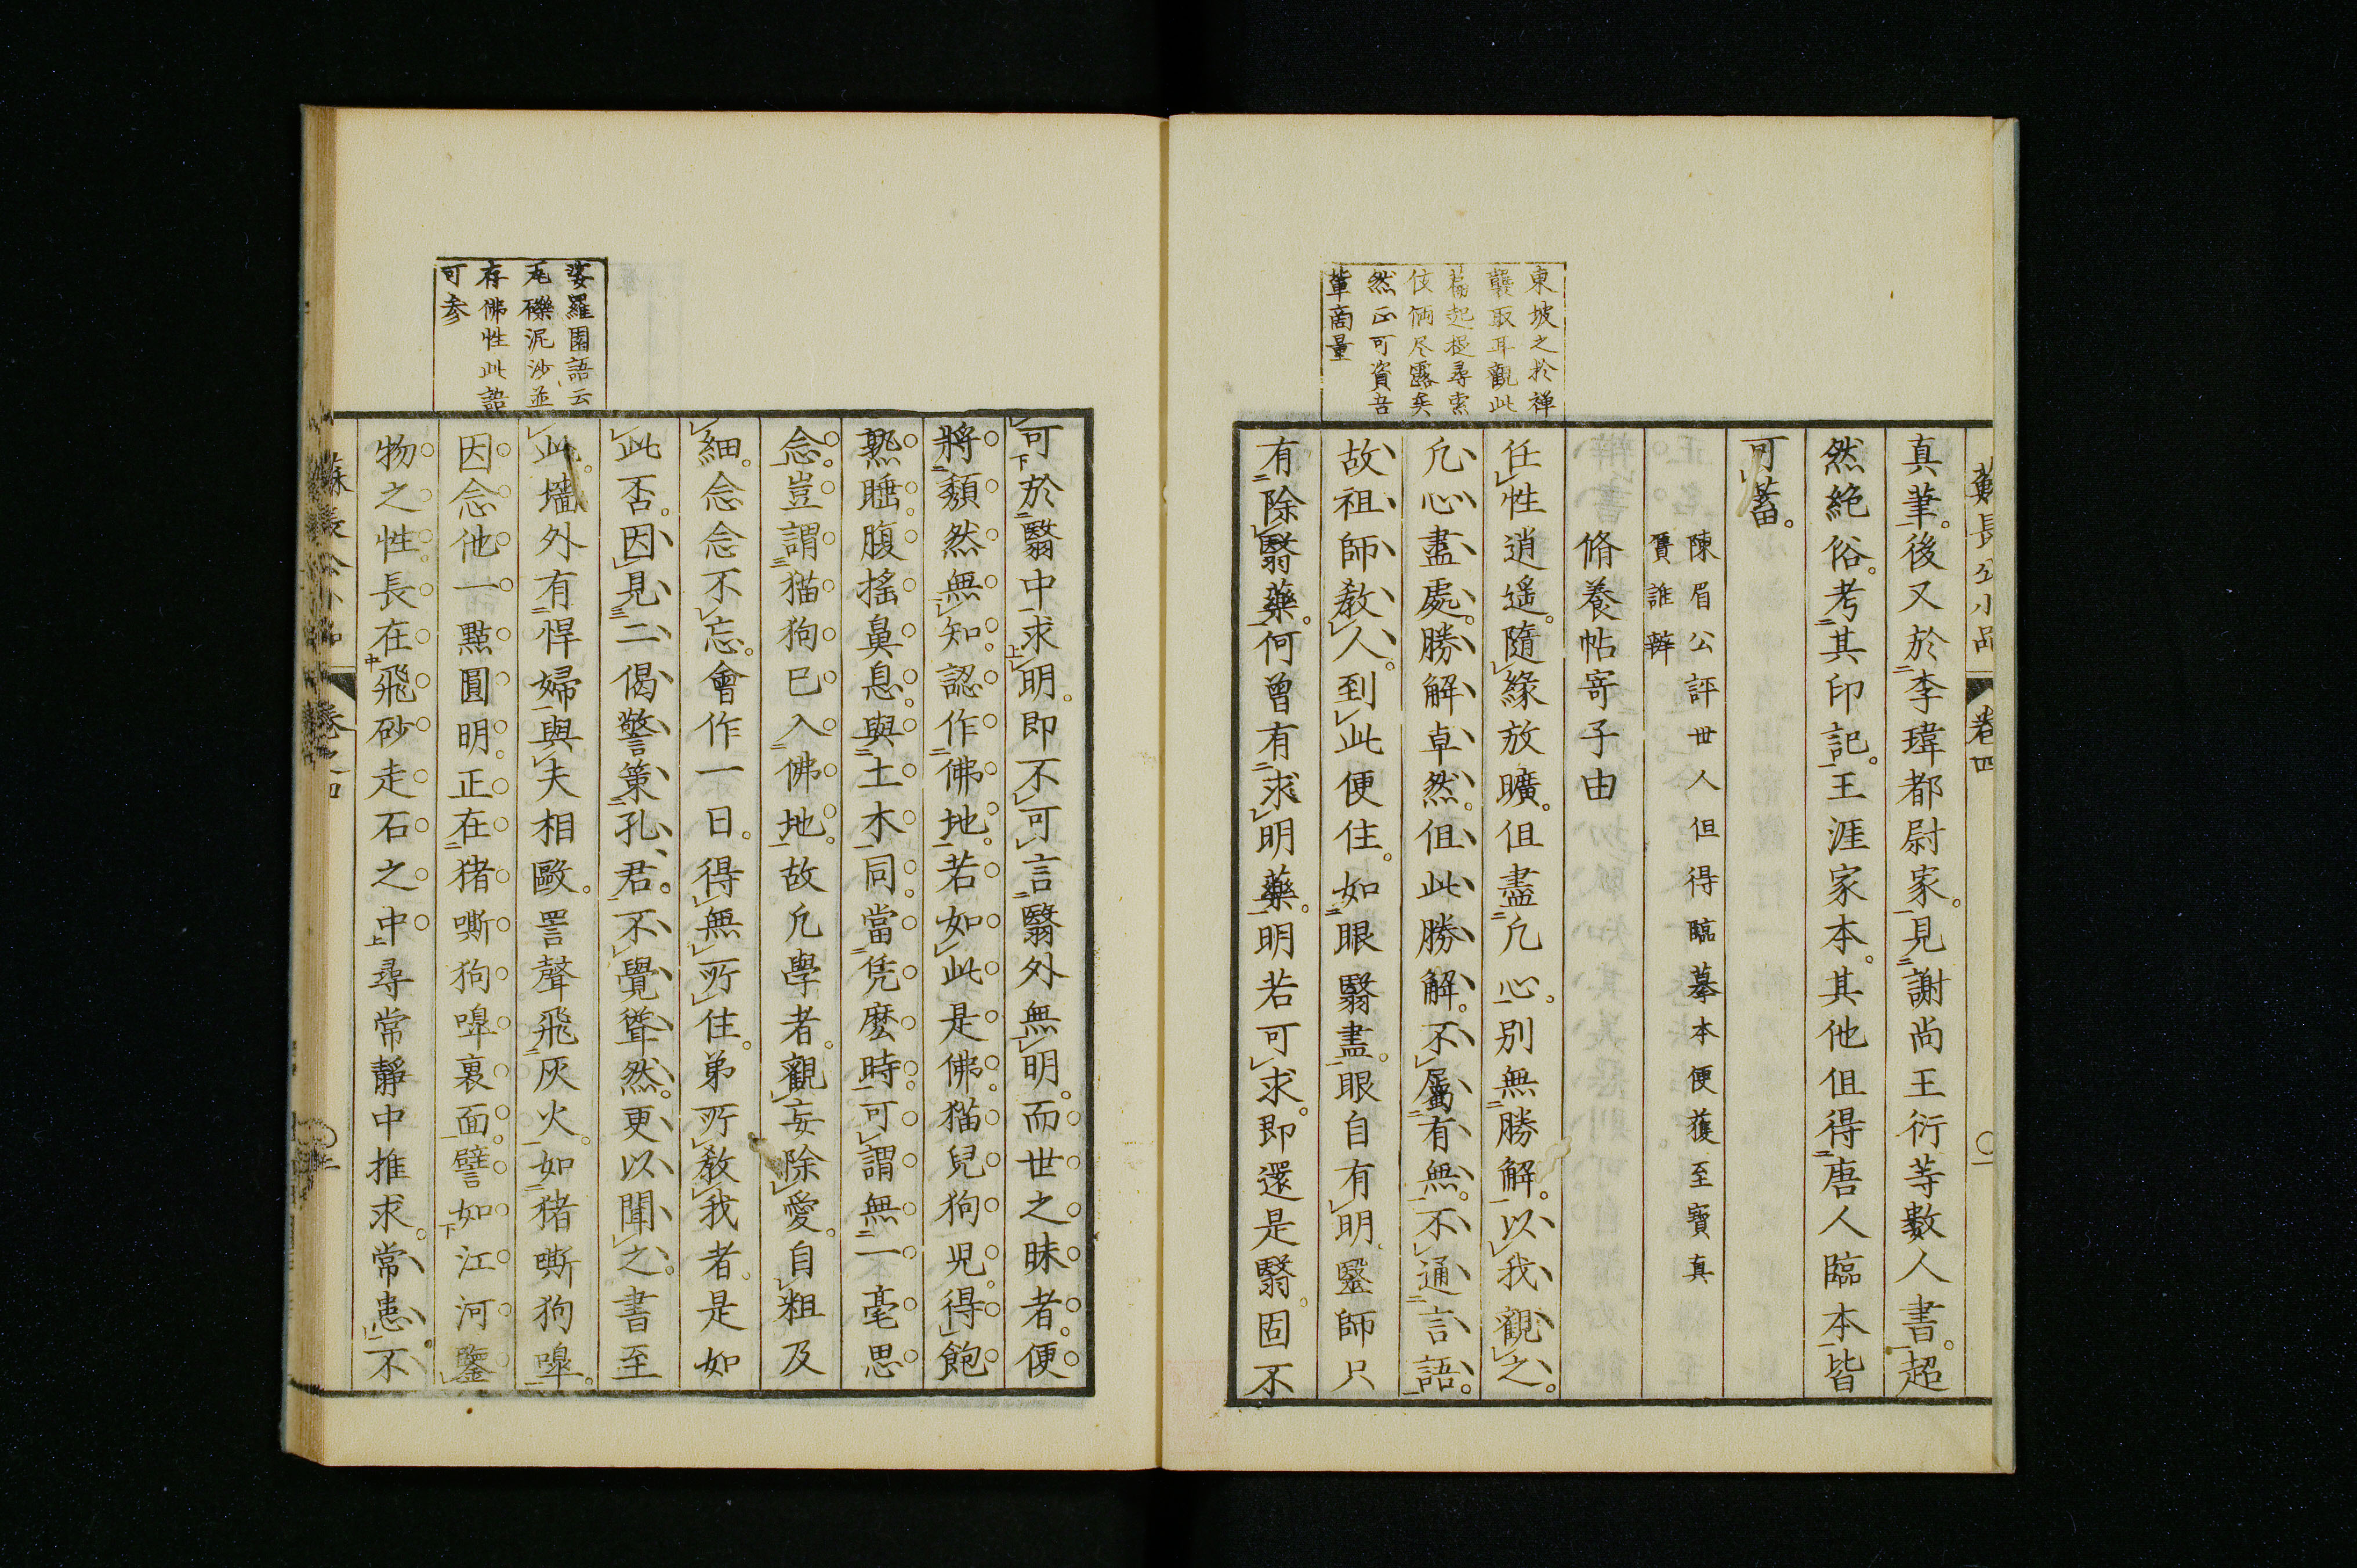 蘇長公小品 卷四
真筆。後又於李瑋都尉家。見謝尚王衍等數人書。超
然絶俗。考其印記。王涯家本。其他但得唐人臨本皆
可蓄。
陳眉公評世人但得臨摹本便獲至寶真
贋誰辨
脩養帖寄子由
任性逍遥。隨緣放曠。但盡凡心。別無勝解。以我觀之。
凡心盡處。勝解卓然。但此勝解。不屬有無。不通言語。
故祖師教人。到此便住。如眼翳盡。眼自有明。醫師只
有除翳藥。何曾有求明藥。明若可求。即還是翳。固不
東坡之於禪
襲取耳觀此
篇起提尋索
伎倆尽露矣
然正可資吾
輩商量
可於翳中求明。即不可言翳外無明。而世之昧者。便
將頽然無知。認作佛地。若如此是佛。猫兒狗児。得飽
熟睡。腹搖鼻息。與土木同。當凭麽時。可謂無一毫思
念。豈謂猫狗已入佛地。故凡學者。觀妄除愛。自粗及
細。念念不忘。會作一日。得無所住。弟所教我者。是如
此否。因見二偈警策孔君。不覺聳然。更以聞之。書至
此。墻外有悍婦。與夫相毆。詈聲飛灰火。如猪嘶狗嘷。
因念他一點圓明。正在猪嘶狗嘷裏面。譬如江河鑒
物之性。長在飛砂走石之中。尋常靜中推求。常患不
娑羅園語云
瓦礫泥沙並
存佛性此語
可参